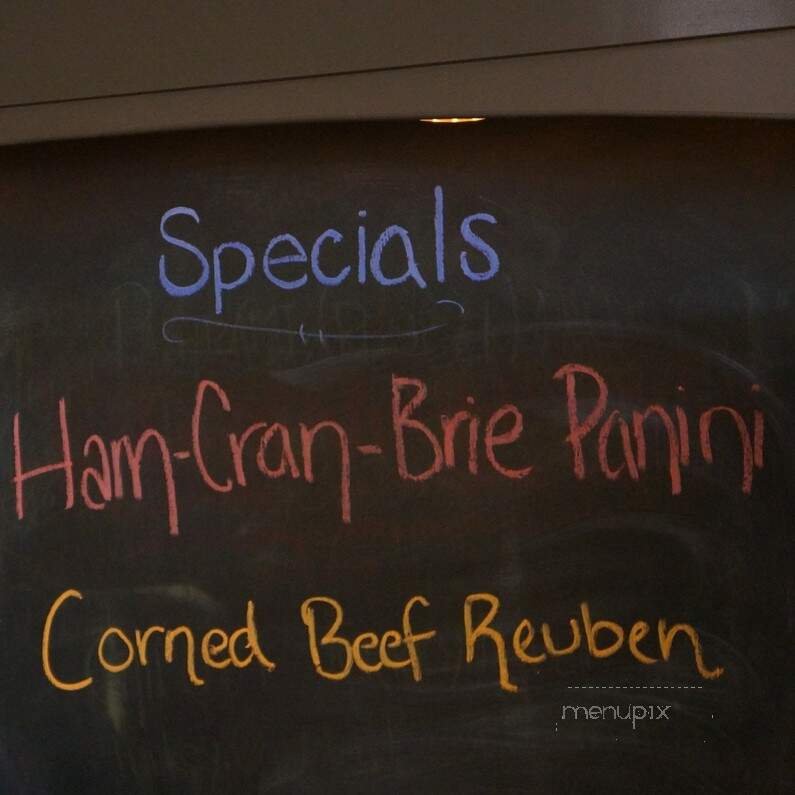 Specials
Ham-Cran-Brie Panini
Corned Beef Reuben
menupix